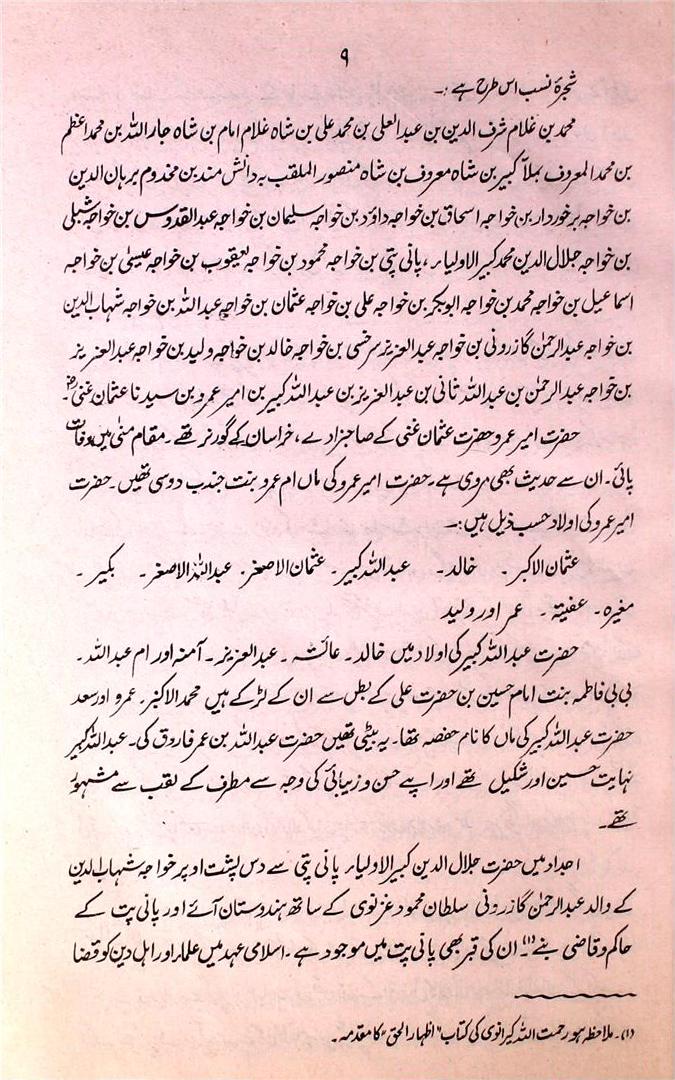 ۹
شجرۂ نسب اس طرح ہے :۔
محمد بن غلام شرف الدین بن عبدالعلی بن محمد علی بن شاہ غلام امام بن شاہ جار اللہ بن محمد اعظم
بن محمد المعروف بملاّ کبیر بن شاہ معروف بن شاہ منصور الملقب بہ دانش مند بن مخدوم برہان الدین
بن خواجہ برخوردار بن خواجہ اسحاق بن خواجہ داؤد بن خواجہ سلیمان بن خواجہ عبدالقدوس بن خواجہ شبلی
بن خواجہ جلال الدین محمد کبیر الاولیاء ، پانی پتی بن خواجہ محمود بن خواجہ یعقوب بن خواجہ عیسیٰ بن خواجہ
اسماعیل بن خواجہ محمد بن خواجہ ابوبکر بن خواجہ علی بن خواجہ عثمان بن خواجہ عبداللہ بن خواجہ شہاب الدین
بن خواجہ عبدالرحمٰن گازرونی بن خواجہ عبدالعزیز سرخسی بن خواجہ خالد بن خواجہ ولید بن خواجہ عبدالعزیز
بن خواجہ عبدالرحمٰن بن عبداللہ ثانی بن عبدالعزیز بن عبداللہ کبیر بن امیر عمرو بن سیدنا عثمان غنیؓ۔
حضرت امیر عمرو حضرت عثمان غنی کے صاحبزادے ، خراسان کے گورنر تھے ۔ مقام منیٰ میں وفات
پائی۔ ان سے حدیث بھی مروی ہے۔ حضرت امیر عمرو کی ماں ام عمرو بنت جندب دوسی تھیں۔ حضرت
امیر عمرو کی اولاد حسب ذیل ہیں :۔
عثمان الاکبر ۔ خالد ۔ عبداللہ کبیر ۔ عثمان الاصغر ۔ عبداللہ الاصغر ۔ بکیر ۔
مغیرہ ۔ عفیتہ ۔ عمر اور ولید
حضرت عبداللہ کبیر کی اولاد میں خالد ۔ عائشہ ۔ عبدالعزیز ۔ آمنہ اور ام عبداللہ ۔
بی بی فاطمہ بنت امام حسین بن حضرت علی کے بطن سے ان کے لڑکے ہیں محمد الاکبر ۔ عمرو اور سعد
حضرت عبداللہ کبیر کی ماں کا نام حفصہ تھا۔ یہ بیٹی تھیں حضرت عبداللہ بن عمر فاروق کی۔ عبداللہ کبیر
نہایت حسین اور شکیل تھے اور اپنے حسن و زیبائی کی وجہ سے مطرف کے لقب سے مشہور
تھے۔
اجداد میں حضرت جلال الدین کبیر الاولیاء پانی پتی سے دس پشت اوپر خواجہ شہاب الدین
کے والد عبدالرحمٰن گازرونی سلطان محمود غزنوی کے ساتھ ہندوستان آئے اور پانی پت کے
حاکم و قاضی بنے(۱)۔ ان کی قبر بھی پانی پت میں موجود ہے۔ اسلامی عہد میں علماء اور اہل دین کو قضا
(۱)۔ ملاحظہ ہو رحمت اللہ کیرانوی کی کتاب "اظہار الحق" کا مقدمہ۔